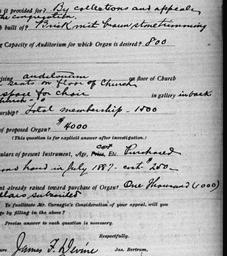 it provided for? By collections and appeals
the congregation.
built of? Brick with brown stone trimming
Capacity of Auditorium for which Organ is desired? 800
Floor of Church
seats on floor of Church
space for choir in gallery in back
Total membership - 1500
of proposed Organ? $4000
(This question is for explicit answer after investigation.)
of present Instrument, Age, Etc. Purchased
hand in July 1887. cost $250
already raised toward purchase of Organ? One thousand (1000)
dollars subscribed
To facilitate Mr. Carnegie's Consideration of your appeal, will you
by filling in the above?
Precise answer to each question is necessary.
Respectfully,
James F. Devine Jas. Bertram,